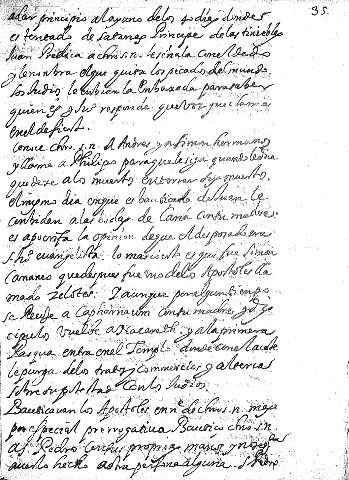 35.
a dar principio al ayuno de los 40 dias donde
es tentado de Satanas Principe de las tinieblas
Juan Predica a chris.n. señala con el dedo
y lo nombra el que quita los pecados del mundo.
los Judios le embian la Embaxada para saber
quien es y Jua responde que voz que clama
en el desierto.
conuce chr. s.n. A Andres y a Simon hermanos
y llama a Philipo para que le siga quando le
que dexe a los muertos enterrar su muerto.
el mismo dia en que es bautizado de Juan le
conbidan a las bodas de Cana con su madre,
es apocrifa la opinion de que el desposado era
S. Ju.o euangelista. lo mas cierto es que fue Simon
Cananeo que despues fue uno de los Apostoles lla
mado Zelotes. Y aunque por algun tiempo
se a Capharnaum con su madre y di
cipulos vuelve a Nazareth y a la primera
Pasqua entra en el Templo donde con el azote
le purga de los tratos y commercios y alterca
sobre su potestad con los Judios.
Bautizauan los Apostoles en n.e de chris.n. mas
por especial prerrogativa Bautizo chris.n.
a S. Pedro con sus propias manos y no
auerlo hecho a otra persona alguna. S. Pedro